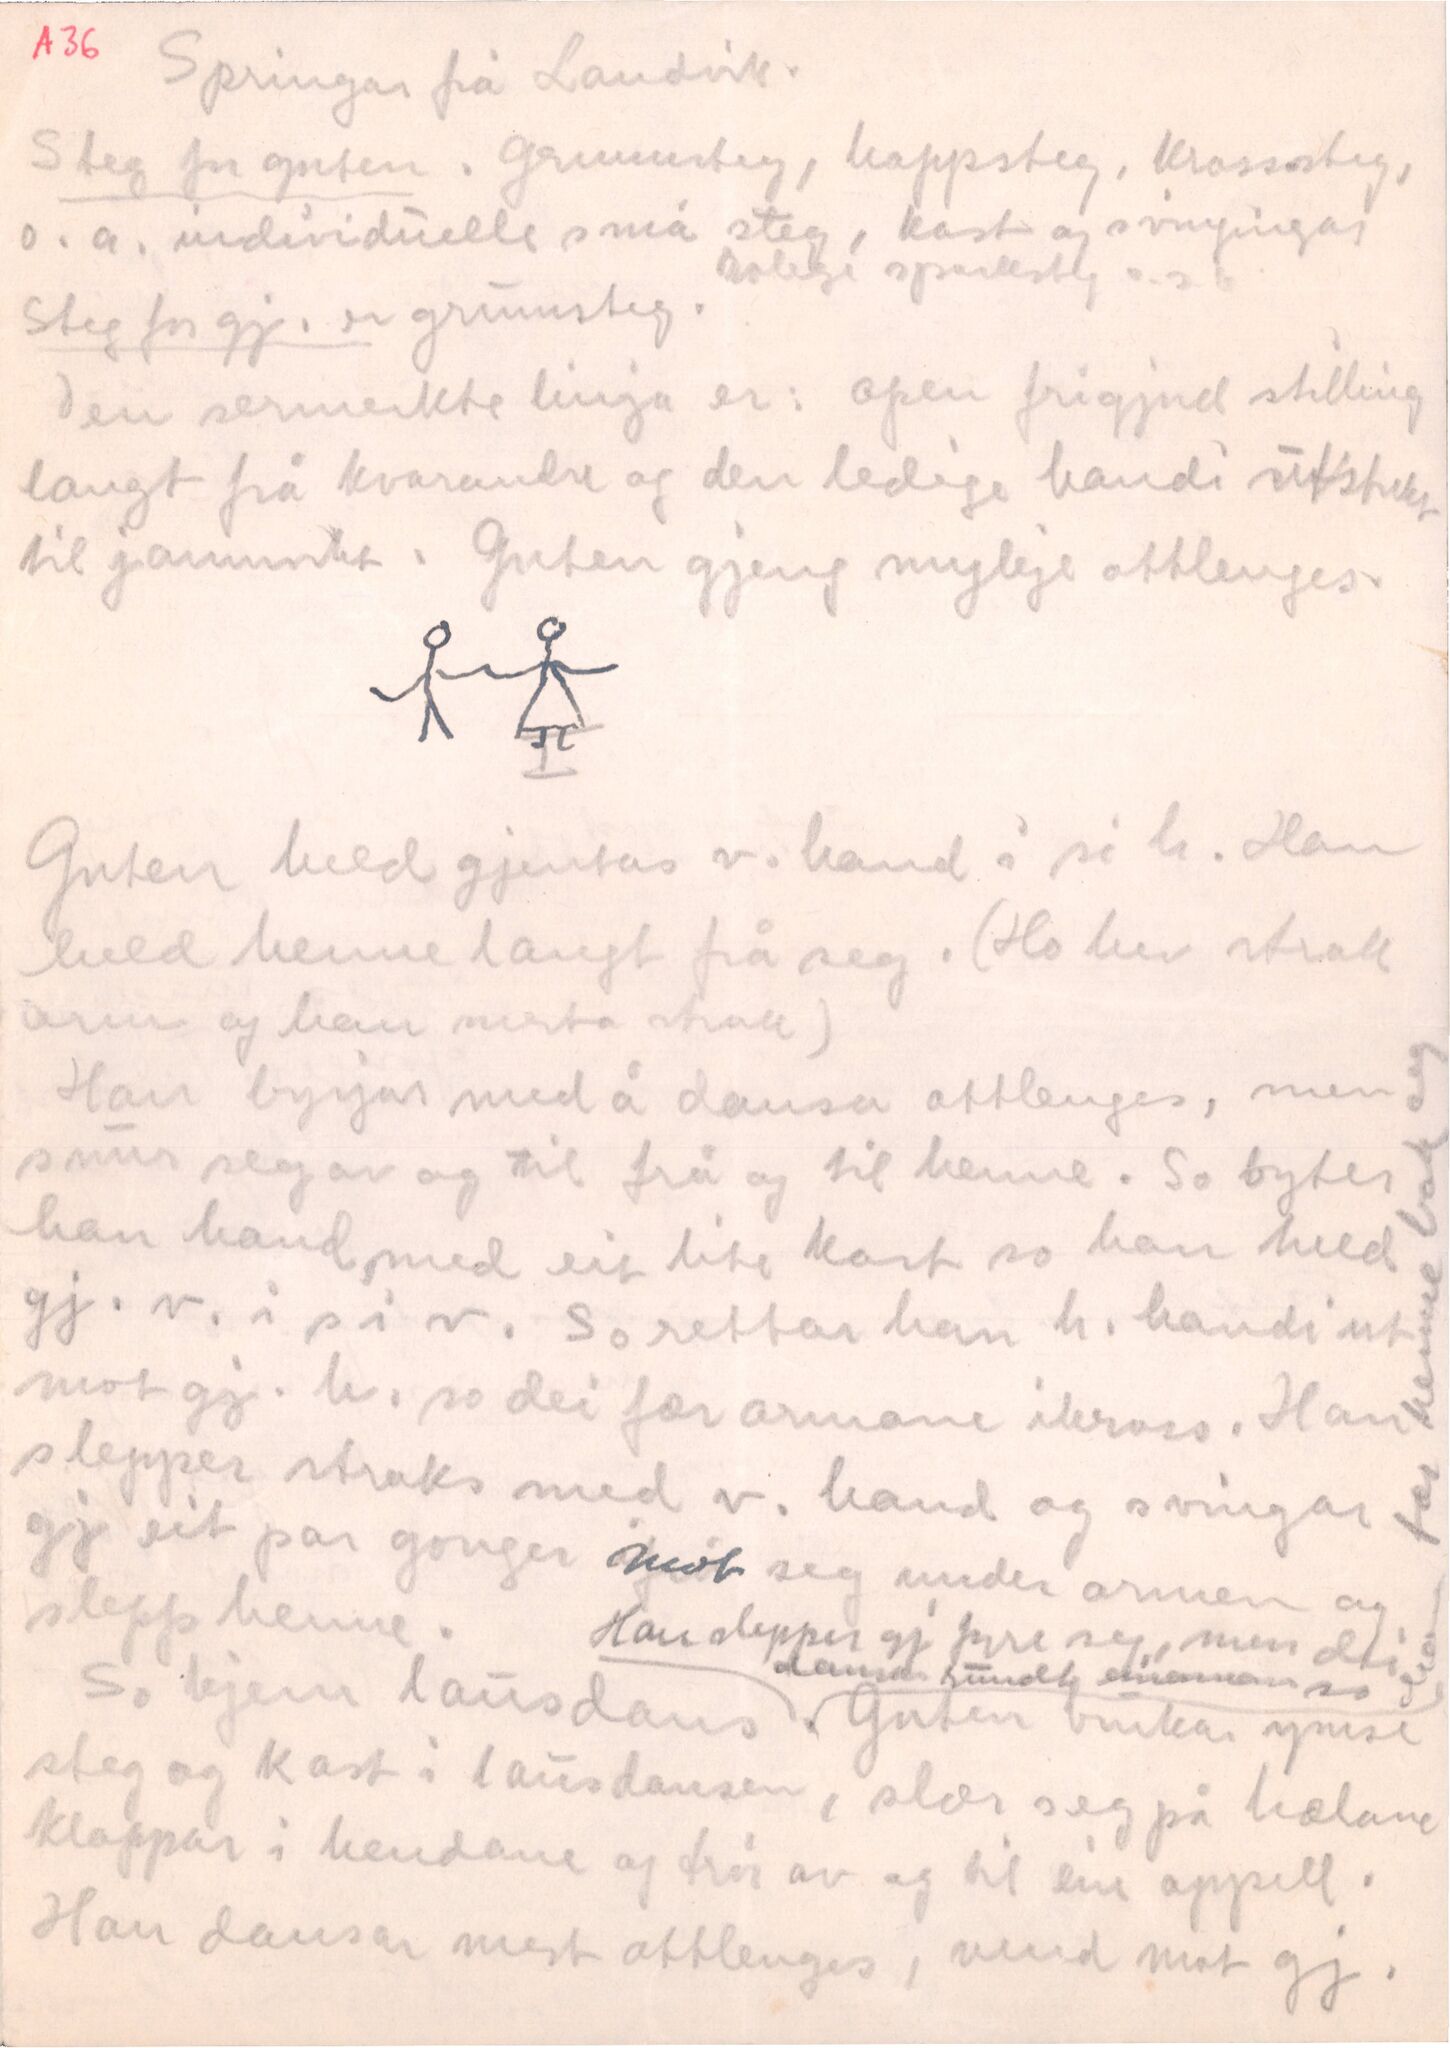 A36
Springar frå Landvik.
Steg for guten. Grunnsteg, hoppsteg, krossteg,
o.a. individuelle små steg, kast og svingingar
sparksteg o.s.b.
Steg for gj. er grunnsteg.
Den sermerkte linja er: open frigjord stilling
langt frå kvarandre og den ledige handi utstrekt
til jamvekt. Guten gjeng mykje attlenges.
Guten held gjentas v. hand i si h. Han
held henne langt frå seg. (Ho hev strak
arm og han mesta strak)
Han byrjar med å dansa attlenges, men
snur seg av og til frå og til henne. So byter
han hand, med eit lite kast so han held
gj. v. i si v. So rettar han h. handi ut
mot gj. h. so dei fær armane ikross. Han
slepper straks med v. hand og svingar
gj eit par gonger mot seg under armen og
slepp henne.
Han slepper gj fyre seg, men dei
dansar rundt einannan so
fær henne bak seg
So kjem lausdans. Guten brukar ymse
steg og kast i lausdansen, slær seg på hælane
klappar i hendane og trør av og til ein appell.
Han dansar mest attlenges, vend mot gj.